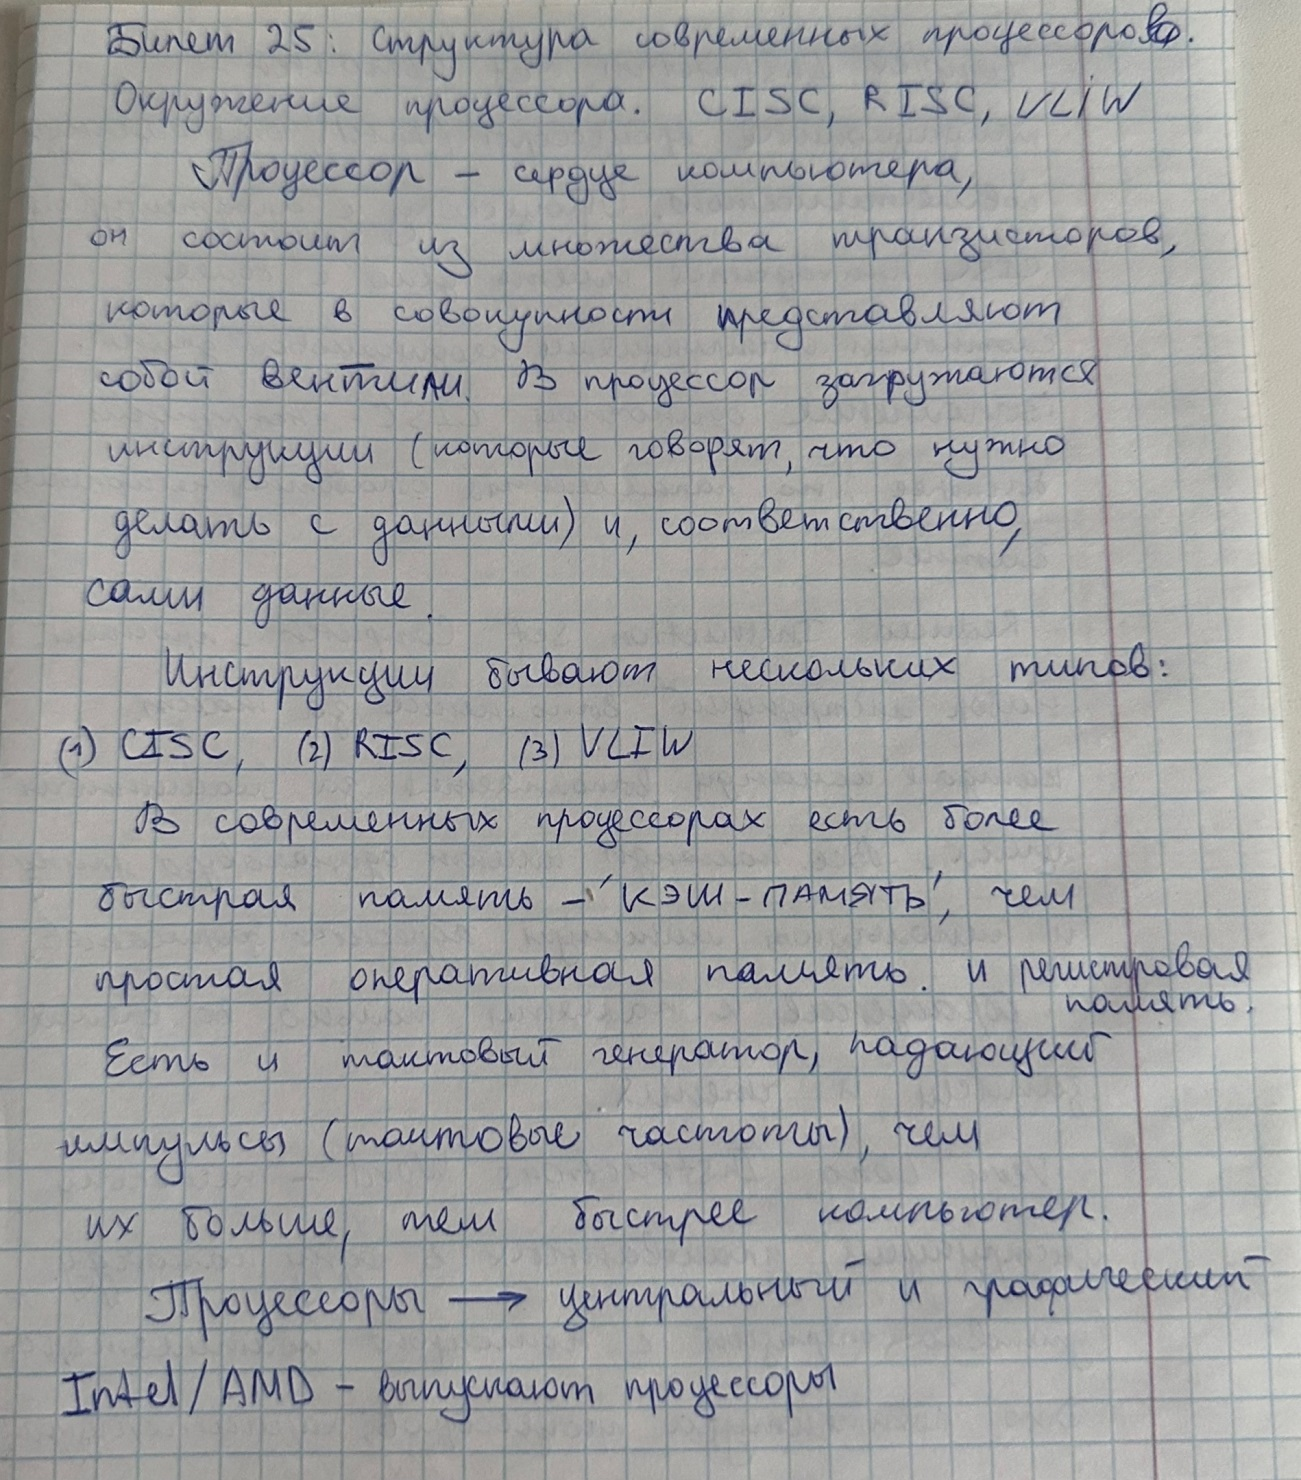 Билет 25: Структура современных процессоров.
Окружение процессора. CISC, RISC, VLIW
Процессор – сердце компьютера,
он состоит из множества транзисторов,
которые в совокупности представляют
собой вентили. В процессор загружаются
инструкции (которые говорят, что нужно
делать с данными) и, соответственно,
сами данные.
Инструкции бывают нескольких типов:
(1) CISC, (2) RISC, (3) VLIW
В современных процессорах есть более
быстрая память – 'КЭШ-ПАМЯТЬ', чем
простая оперативная память. и регистровая
память.
Есть и тактовый генератор, подающий
импульсы (тактовые частоты), чем
их больше, тем быстрее компьютер.
Процессоры → центральный и графический
Intel/AMD – выпускают процессоры